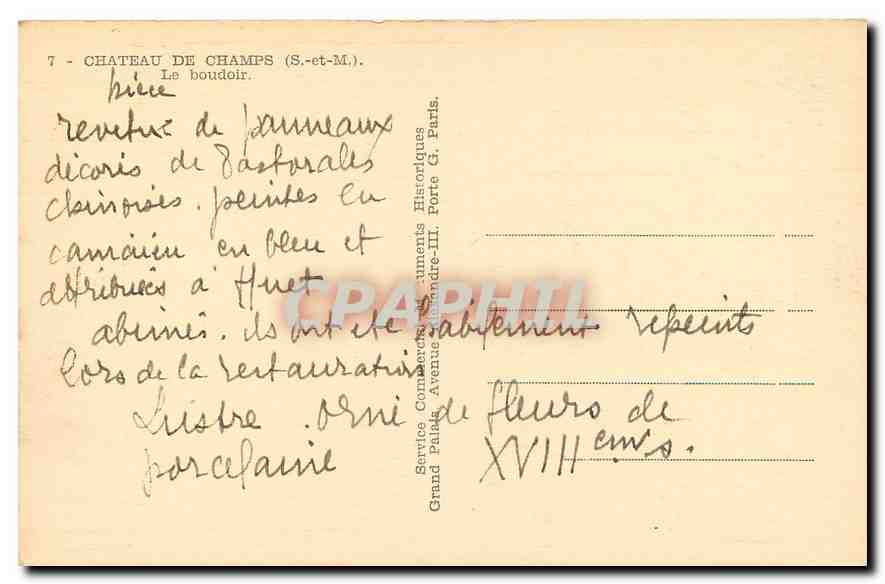 7 - CHATEAU DE CHAMPS (S.-et-M.).
Le boudoir.
pièce
revetue de panneaux
décorés de Pastorales
chinoises. peintes en
camaieu en bleu et
attribuées à Huet
abimés. ils ont été habilement repeints
lors de la restauration
Lustre. orné de fleurs de
porcelaine XVIIIeme s.
Service Commercial Monuments Historiques
Grand Palais, Avenue Alexandre-III. Porte G. Paris.
CPAPHIL